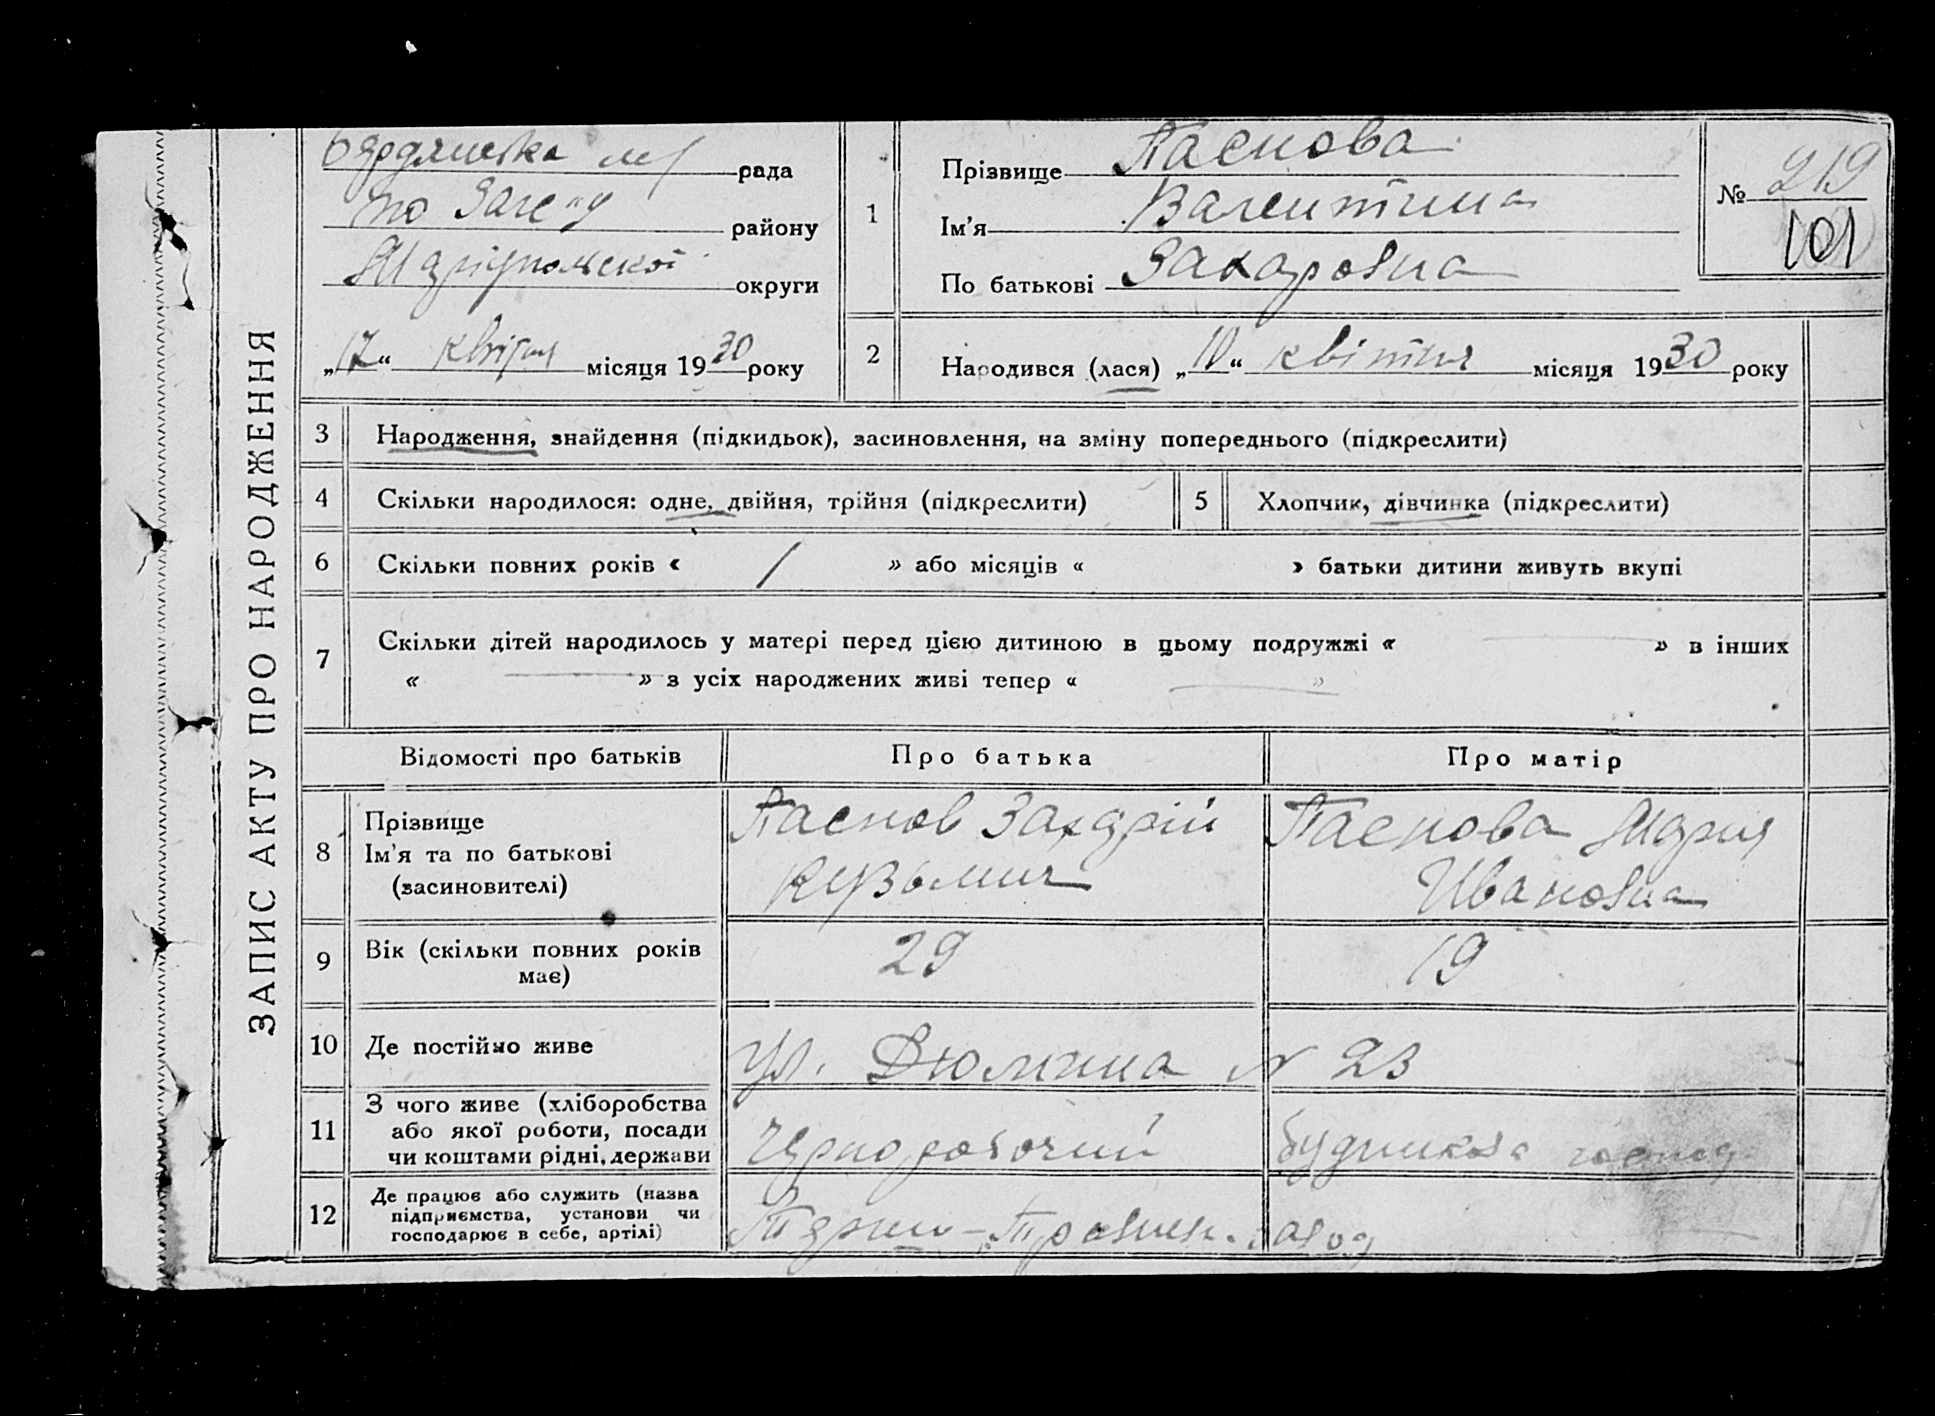 ЗАПИС АКТУ ПРО НАРОДЖЕННЯ
Бердянська м/ рада
по Загс'у району
Маріупольської округи
„17“ квітня місяця 1930 року
1 Прізвище Паєнова
Ім'я Валентина
По батькові Захаровна
№ 219
101
2 Народився (лася) „10“ квітня місяця 1930 року
3 Народження, знайдення (підкидьок), засиновлення, на зміну попереднього (підкреслити)
4 Скільки народилося: одне, двійня, трійня (підкреслити) 5 Хлопчик, дівчинка (підкреслити)
6 Скільки повних років « / » або місяців « » батьки дитини живуть вкупі
7 Скільки дітей народилось у матері перед цією дитиною в цьому подружжі « — » в інших
« — » з усіх народжених живі тепер « — »
Відомості про батьків Про батька Про матір
8 Прізвище
Ім'я та по батькові
(засиновителі)
Паєнов Захарій
Кузьмич
Паєнова Мария
Ивановна
9 Вік (скільки повних років
має)
29 19
10 Де постійно живе ул. Дюмина N 23
11 З чого живе (хліборобства
або якої роботи, посади
чи коштами рідні, держави
Чорноробочий
домашня господ.
12 Де працює або служить (назва
підприємства, установи чи
господарює в себе, артілі)
завод